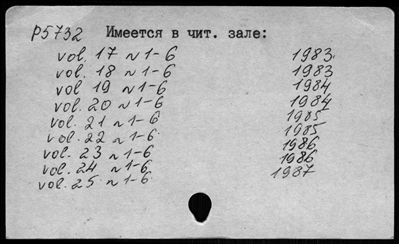 P5732 Имеется в чит. зале:
vol. 17 N 1-6 1983
vol. 18 N 1-6 1983
vol 19 N 1-6 1984
vol. 20 N 1-6 1984
vol. 21 N 1-6 1985
vol. 22 N 1-6 1985
vol. 23 N 1-6 1986
vol. 24 N 1-6 1986
vol. 25 N 1-6 1987